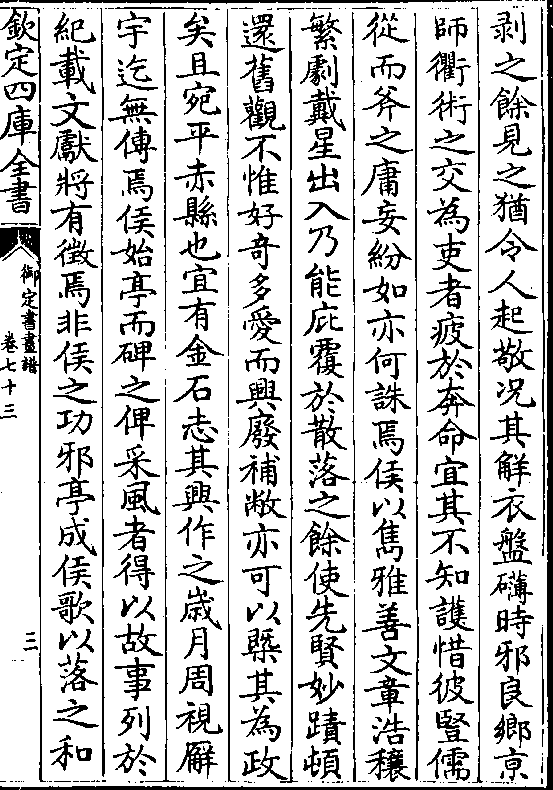 剥之餘見之猶令人起敬况其解衣盤礴時邪良鄉京
師衢術之交為吏者疲於奔命宜其不知護惜彼豎儒
從而斧之庸妄紛如亦何誅焉侯以雋雅善文章浩穰
繁劇戴星出入乃能庇覆於散落之餘使先賢妙蹟頓
還舊觀不惟好奇多愛而興廢補敝亦可以槩其為政
矣且宛平赤縣也宜有金石志其興作之歳月周視廨
宇迄無傳焉侯始亭而碑之俾采風者得以故事列於
紀載文獻將有徵焉非侯之功邪亭成侯歌以落之和
欽定四庫全書
御定書畫譜
卷七十三
三